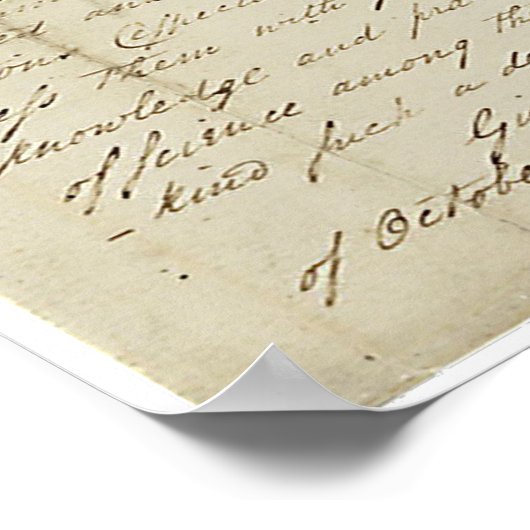 and
ions Effect
ess them with
knowledge and pra
of Science among th
kind Such a de
Gi
of Octobe